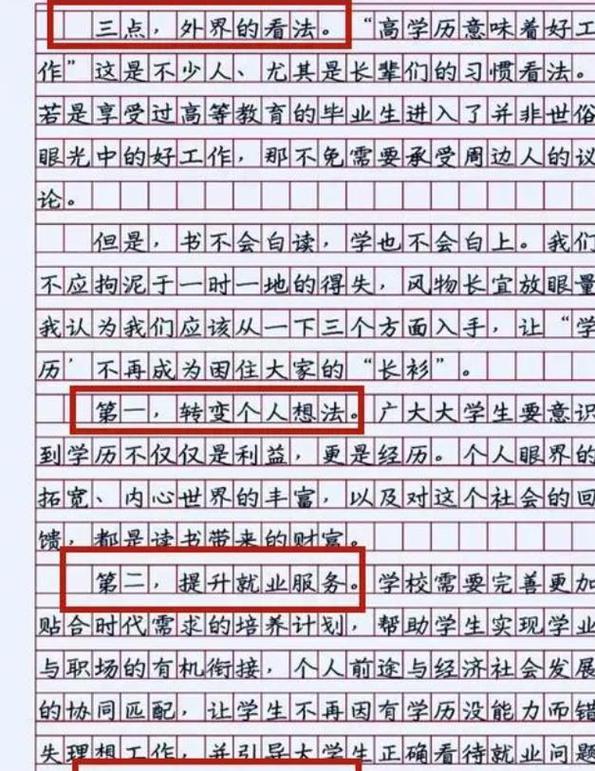 三点，外界的看法。“高学历意味着好工
作”这是不少人、尤其是长辈们的习惯看法。
若是享受过高等教育的毕业生进入了并非世俗
眼光中的好工作，那不免需要承受周边人的议
论。
但是，书不会白读，学也不会白上。我们
不应拘泥于一时一地的得失，风物长宜放眼量
我认为我们应该从一下三个方面入手，让“学
历’不再成为困住大家的“长衫”。
第一，转变个人想法。广大大学生要意识
到学历不仅仅是利益，更是经历。个人眼界的
拓宽、内心世界的丰富，以及对这个社会的回
馈，都是读书带来的财富。
第二，提升就业服务。学校需要完善更加
贴合时代需求的培养计划，帮助学生实现学业
与职场的有机衔接，个人前途与经济社会发展
的协同匹配，让学生不再因有学历没能力而错
失理想工作，并引导大学生正确看待就业问题